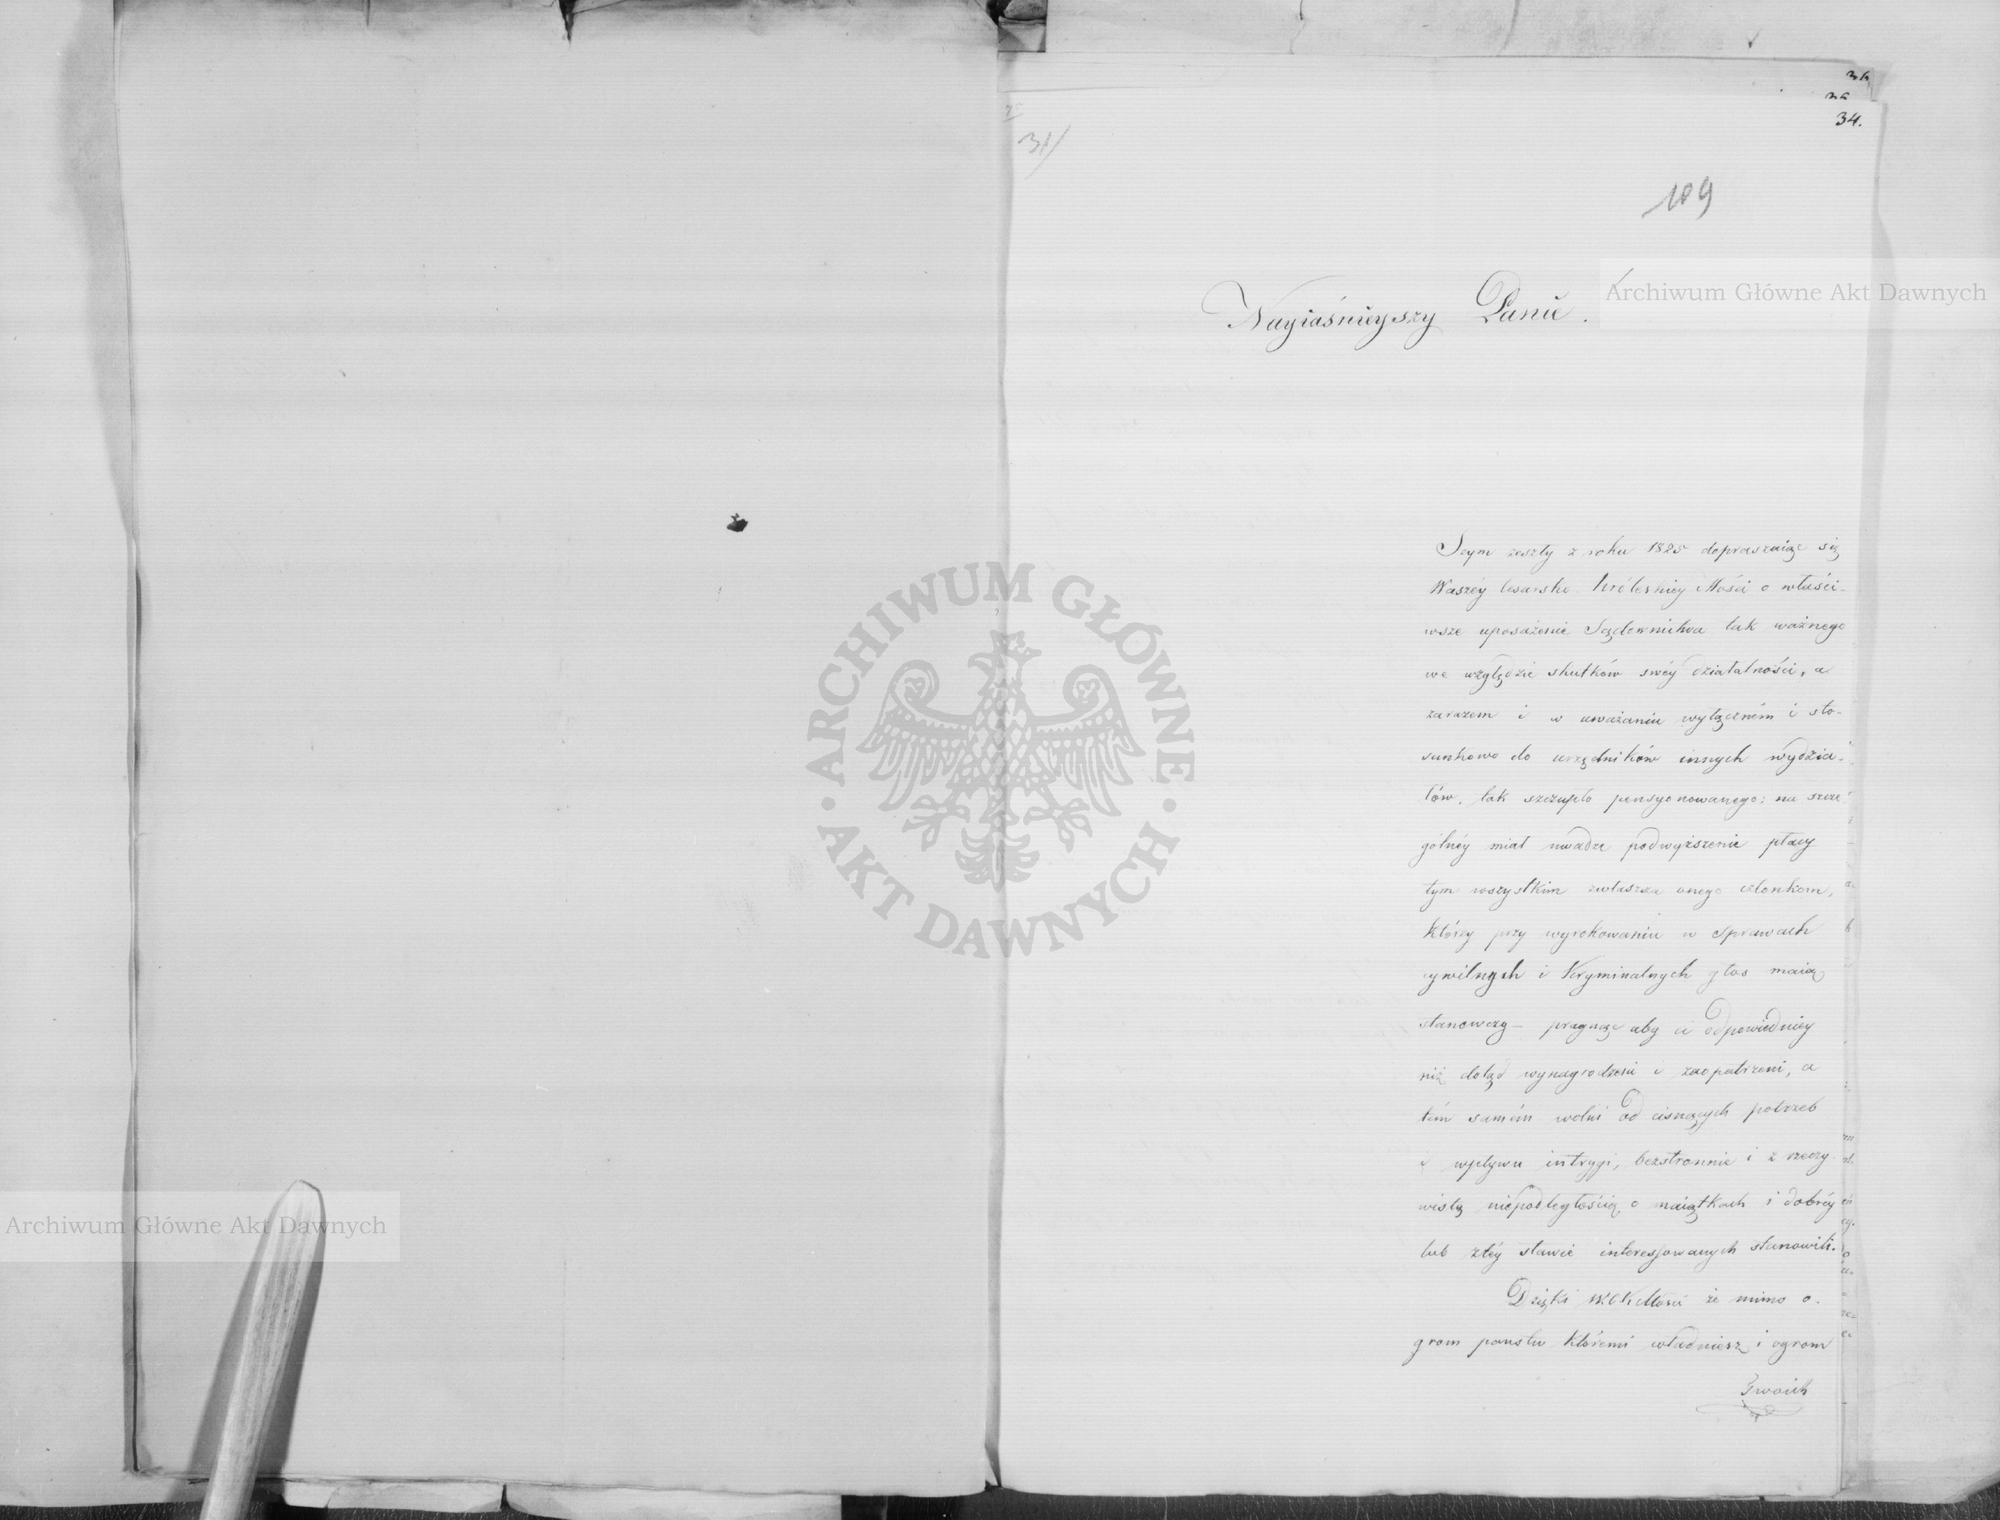 34.
31/
109
Archiwum Główne Akt Dawnych
Nayiaśnieyszy Panie.
Seym zeszły z roku 1825 dopraszaiąc się
Waszéy Cesarsko Królewskiey Mości o właści-
wsze uposażenie Sądownictwa tak ważnego
we względzie skutków swéy działalności, a
zarazem i w uważaniu wyłączném i sto-
sunkowo do urzędników innych wydzia-
łów, tak szczupło pensyonowanego; na szcze-
gólnéy miał uwadze podwyższenie płacy
tym wszystkim zwłaszcza onego członkom,
którzy przy wyrokowaniu w Sprawach
cywilnych i Kryminalnych głos maią
stanowczy — pragnąc aby ci odpowiedniey
niż dotąd wynagrodzeni i zaopatrzeni, a
tém samém wolni od cisnących potrzeb
i wpływu intrygi, bezstronnie i z rzeczy-
wistą niepodległością o maiątkach i dobréy
lub złéy sławie interessowanych stanowili.
Dzięki WCK Mości że mimo o-
grom państw któremi władniesz i ogrom
Twoich
ARCHIWUM GŁÓWNE
AKT DAWNYCH
Archiwum Główne Akt Dawnych